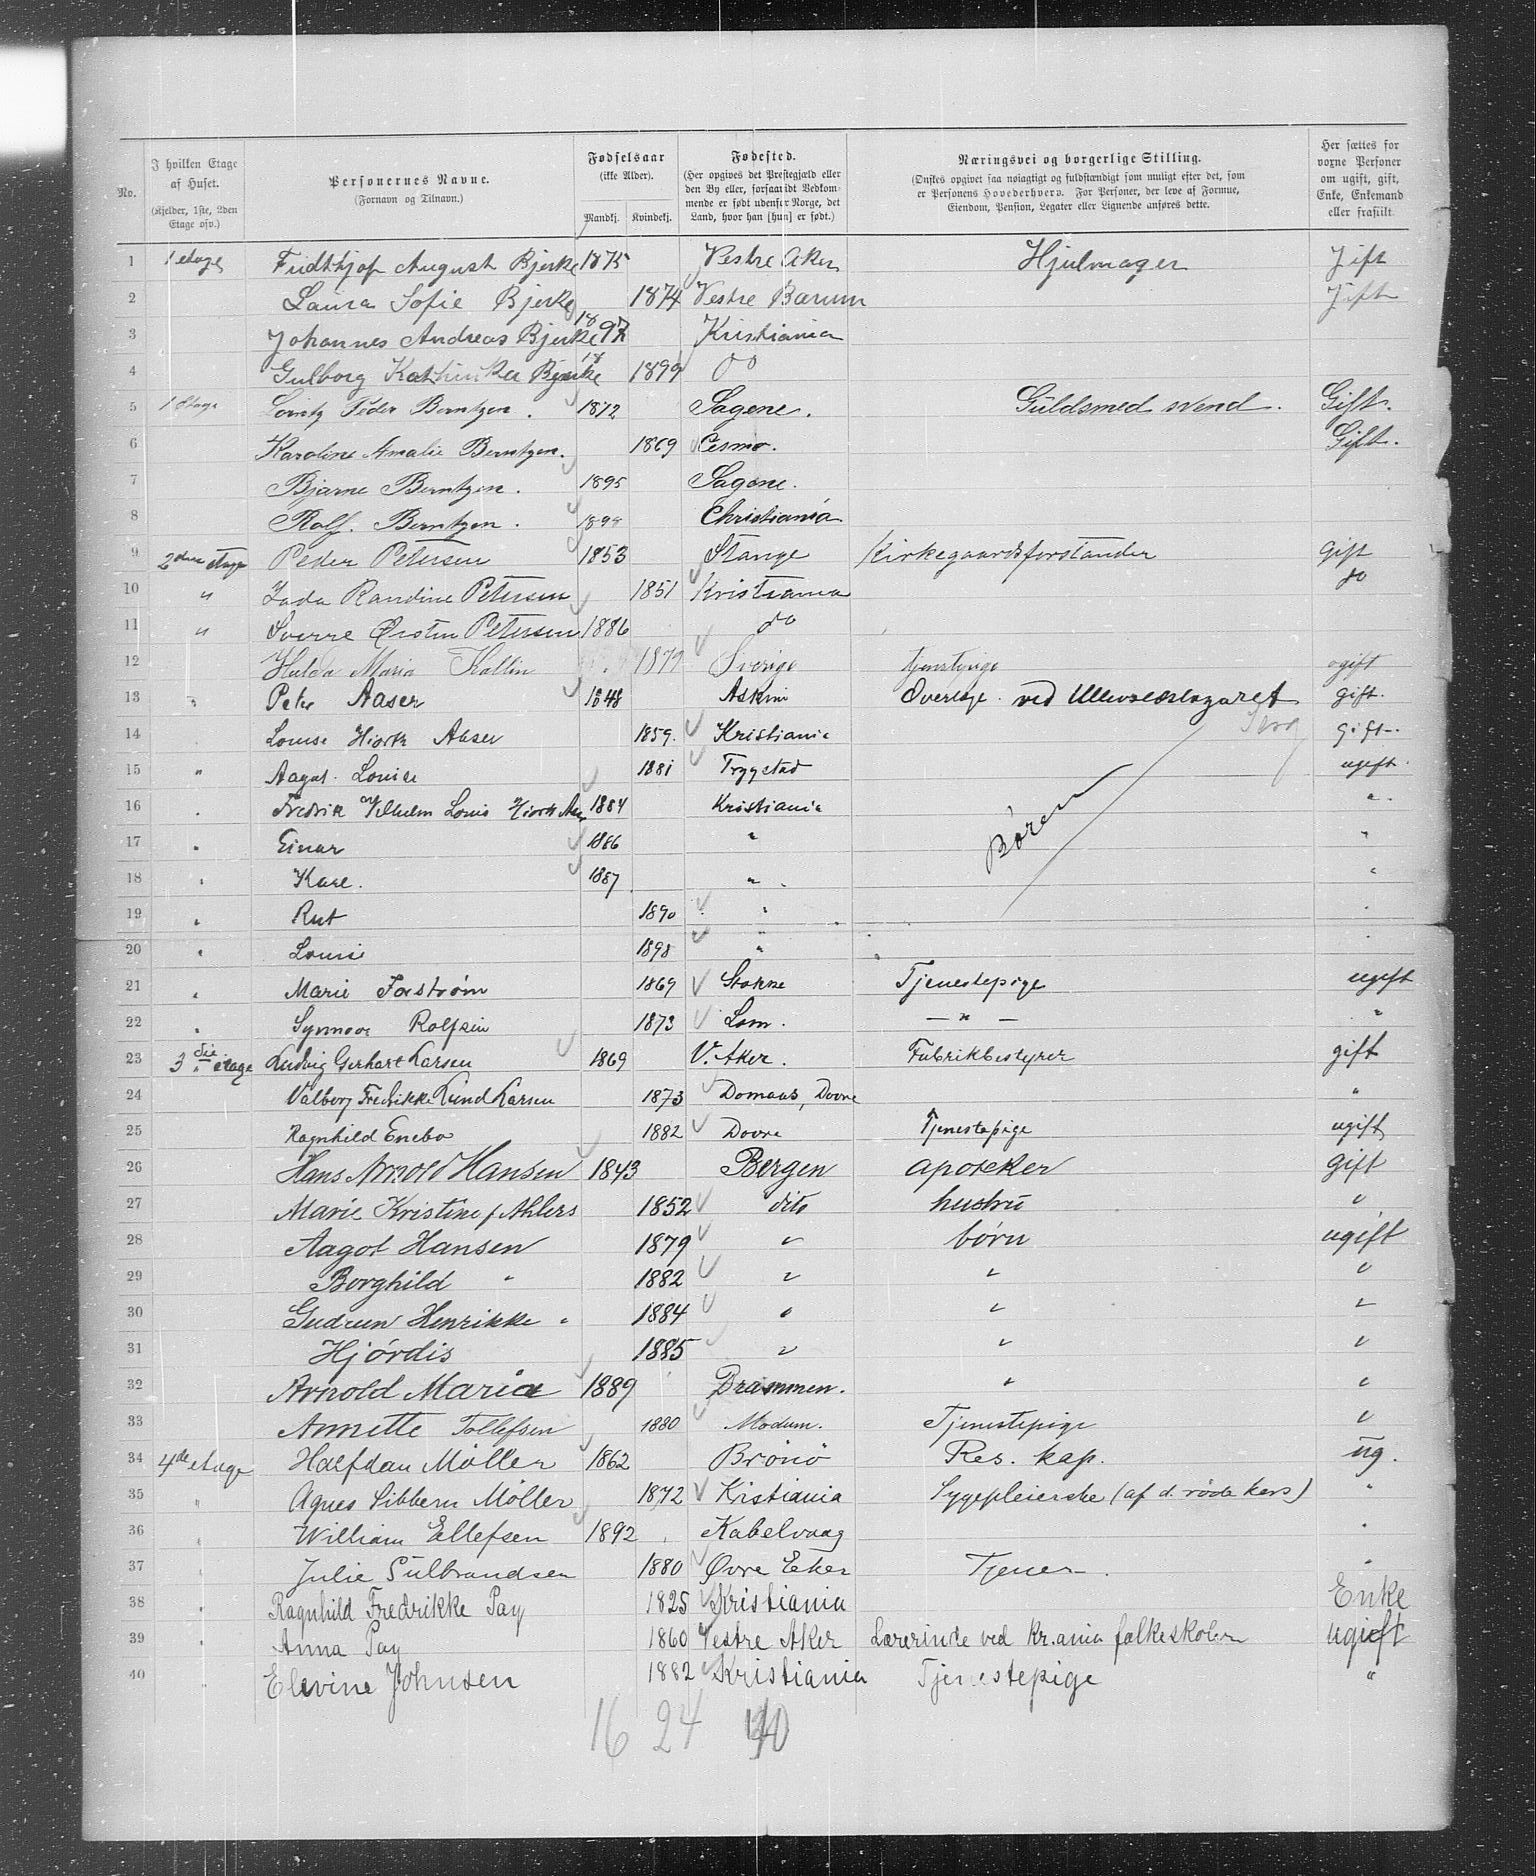 No. | I hvilken Etage af Huset. (Kjelder, 1ste, 2den Etage osv.) | Personernes Navne. (Fornavn og Tilnavn.) | Fødselsaar (ikke Alder). Mandkj. Kvindekj. | Fødested. (Her opgives det Prestegjæld eller den By eller, forsaavidt Vedkommende er født udenfor Norge, det Land, hvor han [hun] er født.) | Næringsvei og borgerlige Stilling. (Ønskes opgivet saa nøiagtigt og fuldstændigt som muligt efter det, som er Personens Hovederhverv. For Personer, der leve af Formue, Eiendom, Pension, Legater eller Lignende anføres dette. | Her sættes for voxne Personer om ugift, gift, Enke, Enkemand eller fraskilt.
1 1 etage Fridthjof August Bjerke 1875 Vestre Aker Hjulmager Gift
2 Laura Sofie Bjerke 1874 Vestre Bærum Gift
3 Johannes Andreas Bjerke 1897 Kristiania
4 Gulborg Kathinka Bjerke 1899 Do
5 1 Etage Lorentz Peder Berntzen. 1872 Sagene. Guldsmed svend. Gift.
6 Karoline Amalie Berntzen. 1869 Gift.
7 Bjarne Berntzen. 1895 Sagene.
8 Rolf. Berntzen. 1899 Christiania
9 2den etage Peder Petersen 1853 Stange Kirkegaardsforstander gift
10 " Randine Petersen 1851 Kristiania do
11 " Sverre Ørsten Petersen 1886 do
12 Hulda Maria Kallin 1879 Sverige tjenestpige ugift
13 " Peter Aaser 1848 Askim Overlæge ved Ullevoldslazaret gift.
14 Louise Hiorth Aaser 1859. Kristiania gift.
15 " Aagot Louise 1881 Trygstad ugift.
16 . Fredrik Vilhelm Louis Hiorth Aaser 1884 Kristiania Børn ".
17 " Einar 1886 " "
18 " Kare. 1887 " "
19 " Rut 1890 "
20 " Louise 1898 "
21 " Marie Forstrøm 1869 Stokke Tjenestepige ugift
22 " Synnøve Rolfsen 1873 Lom. — " — "
23 3die etage Ludvig Gerhart Larsen 1869 V. Aker. Fabrikbestyrer gift
24 Valborg Fredrikke Lund Larsen 1873 Domaas, Dovre "
25 Ragnhild Enebo 1882 Dovre Tjenestepige ugift
26 Hans Arnold Hansen 1843 Bergen apoteker gift
27 Marie Kristine f Ahlers 1852 dito hustru "
28 Aagot Hansen 1879 " børn ugift
29 Borghild " 1882 " " "
30 Gudrun Henrikke " 1884 " " "
31 Hjørdis 1885 " " "
32 Arnold Maria 1889 Drammen. " "
33 Annette Tollefsen 1880 Modum. Tjenestepige "
34 4de etage Halfdan Møller 1862 Brönö Res. kap. ug.
35 " Agnes Sibbern Møller 1872 Kristiania Sygepleierske (af d. røde kors) "
36 " William Ellefsen 1892 Kabelvaag "
37 " Julie Gulbrandsen 1880 Øvre Eker Tjener "
38 " Ragnhild Fredrikke Pay 1825 Kristiania Enke
39 " Anna Pay 1860 Vestre Aker Lærerinde ved Kr.ania folkeskoler ugift
40 Elevine Johnsen 1882 Kristiania Tjenestepige "
16 24 40